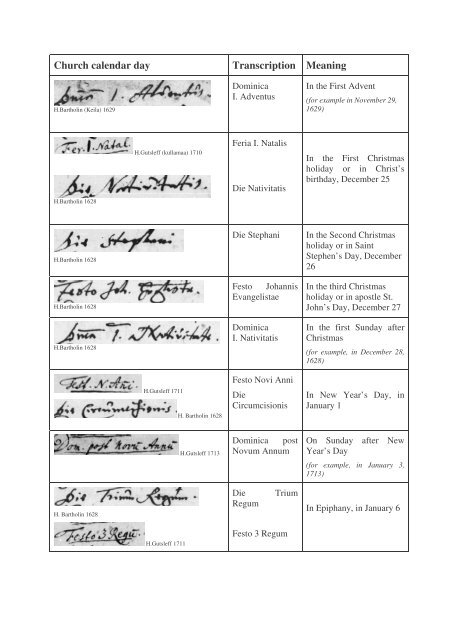 Church calendar day Transcription Meaning
Dom. 1. Adventus.
H.Bartholin (Keila) 1629
Dominica
I. Adventus
In the First Advent
(for example in November 29,
1629)
Fer. I. Natal.
H.Gutsleff (kullamaa) 1710
Feria I. Natalis
Die Nativitatis.
H.Bartholin 1628
Die Nativitatis
In the First Christmas
holiday or in Christ's
birthday, December 25
Die Stephani
H.Bartholin 1628
Die Stephani
In the Second Christmas
holiday or in Saint
Stephen's Day, December
26
Festo Joh.
H.Bartholin 1628
Festo Johannis
Evangelistae
In the third Christmas
holiday or in apostle St.
John's Day, December 27
1. Nativitatis.
H.Bartholin 1628
Dominica
I. Nativitatis
In the first Sunday after
Christmas
(for example, in December 28,
1628)
Fest. N. Ani.
H.Gutsleff 1711
Festo Novi Anni
Die Circumcisionis.
H. Bartholin 1628
Die
Circumcisionis
In New Year's Day, in
January 1
Dom. post Novu Annu
H.Gutsleff 1713
Dominica post
Novum Annum
On Sunday after New
Year's Day
(for example, in January 3,
1713)
Die Trium Regum.
H. Bartholin 1628
Die Trium
Regum
Festo 3 Regu.
H.Gutsleff 1711
Festo 3 Regum
In Epiphany, in January 6